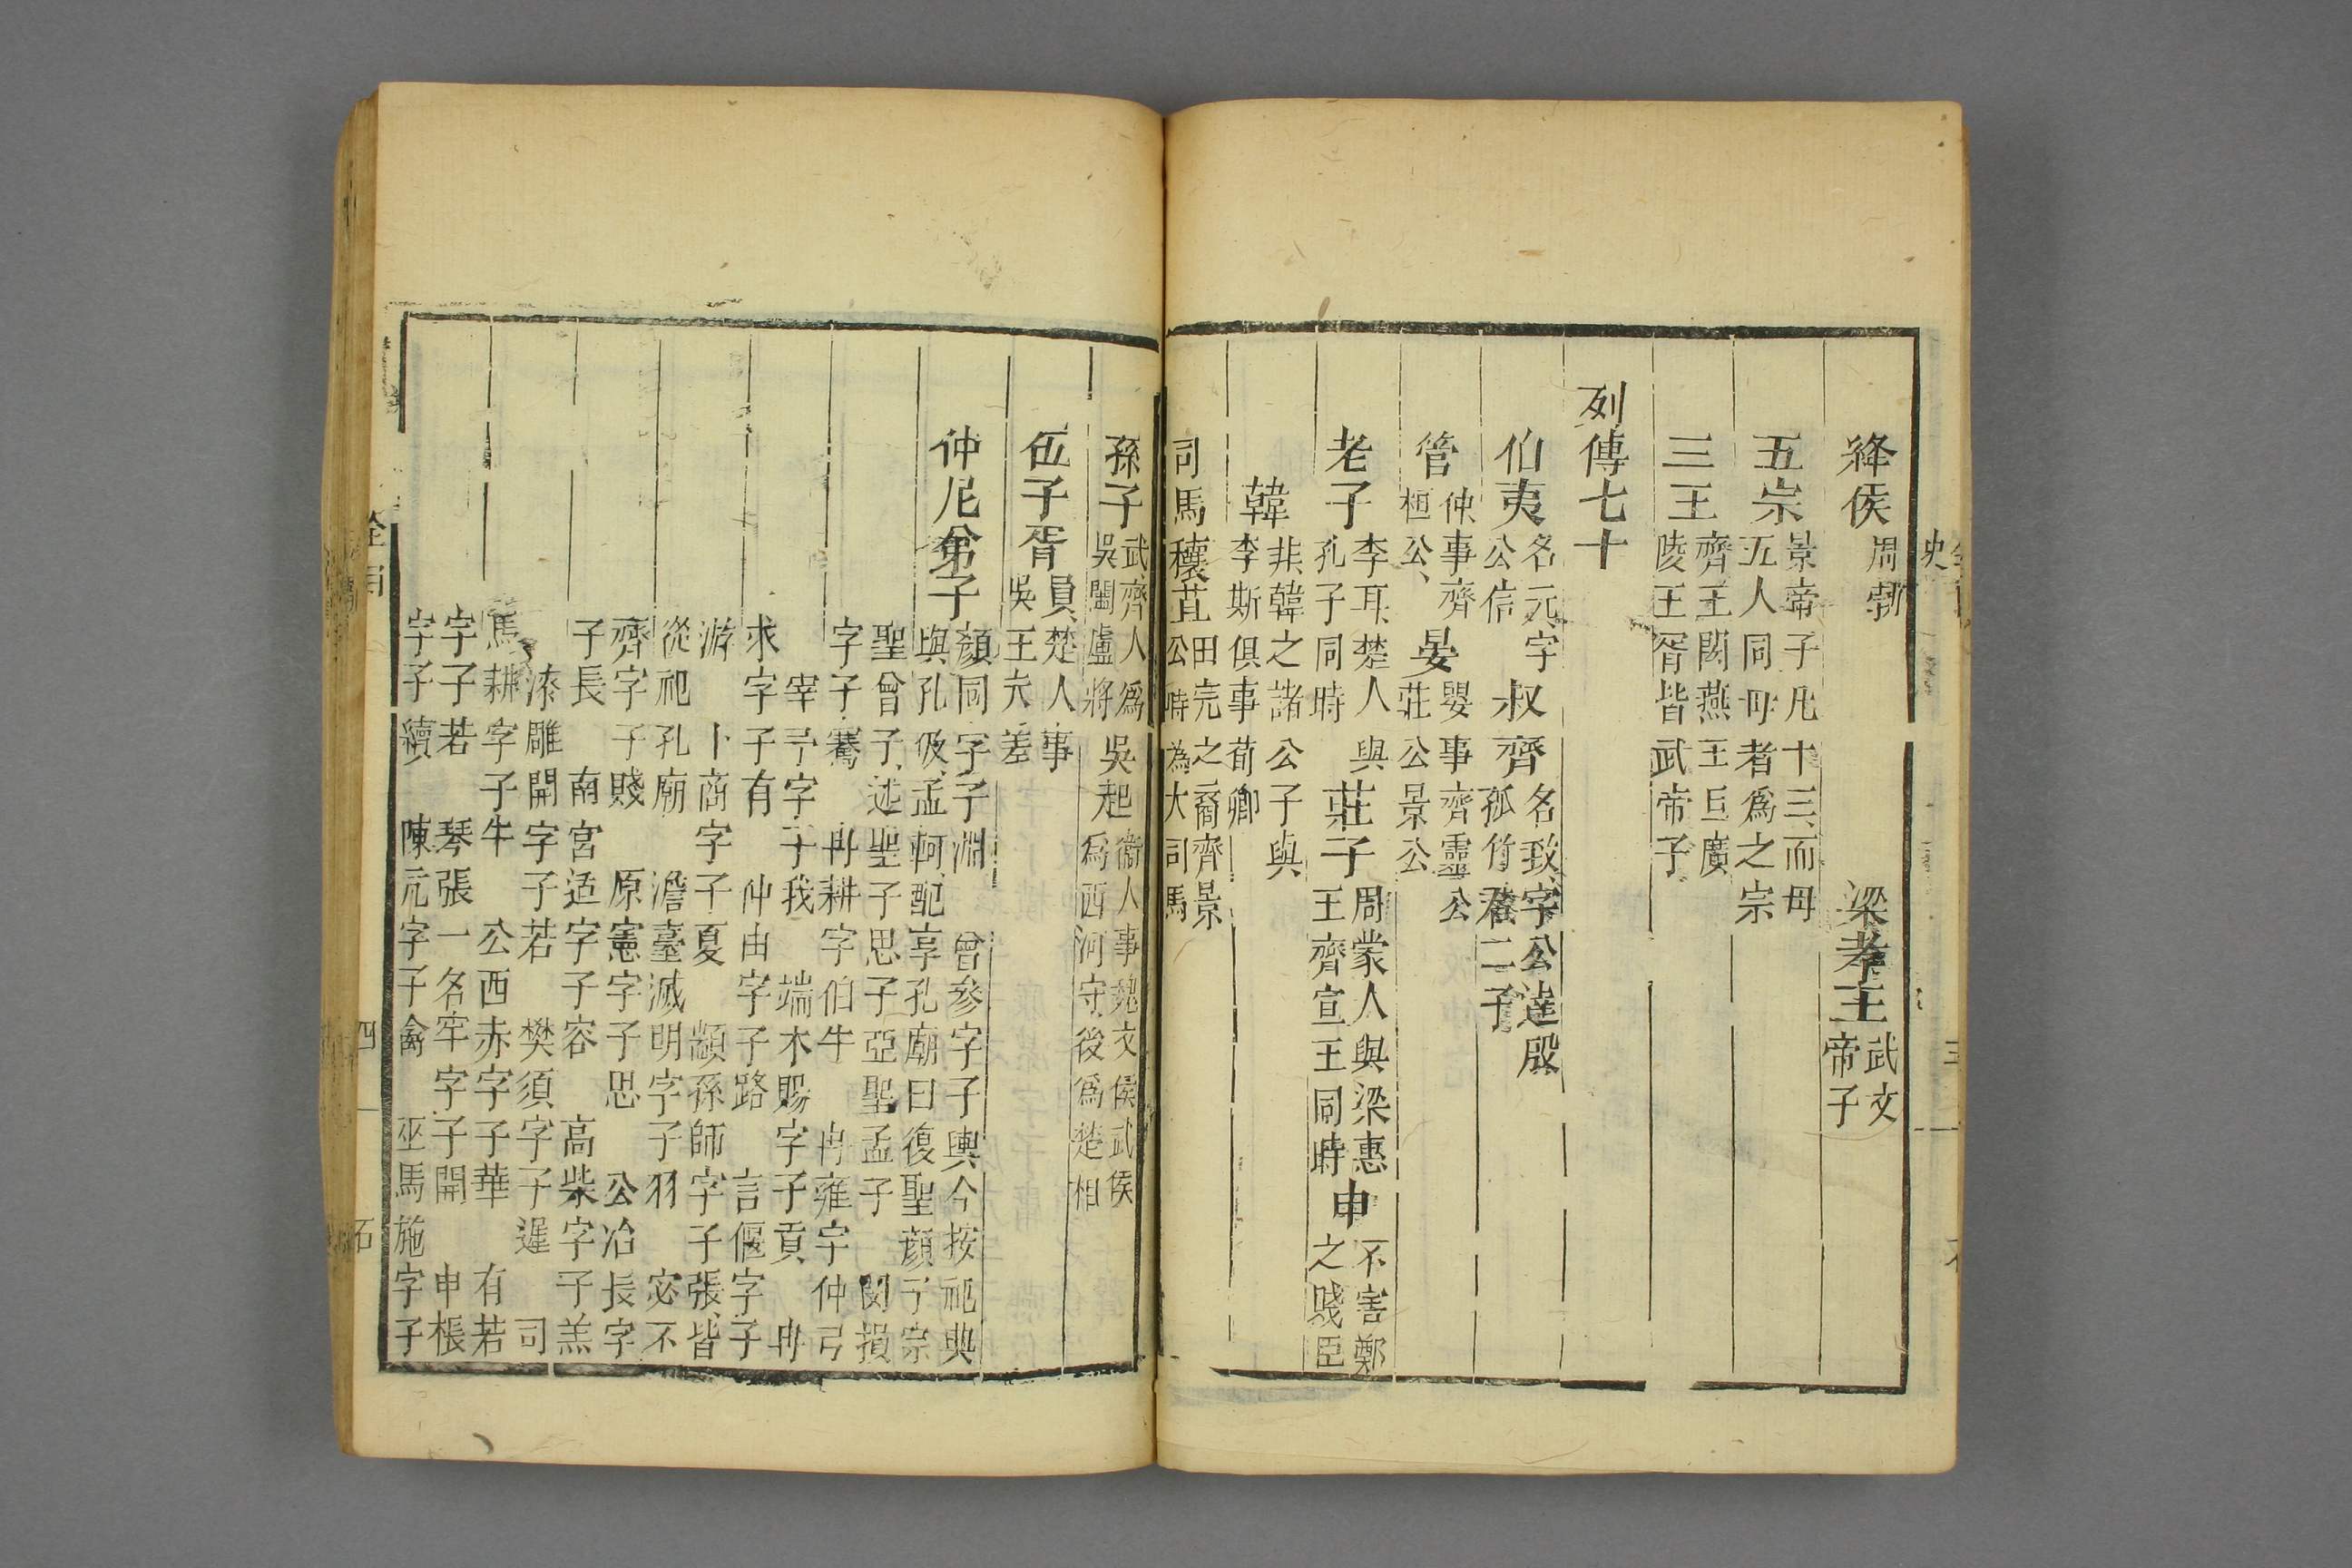 絳侯周勃 梁孝王武文帝子
五宗景帝子凡十三而母五人同母者爲之宗
三王齊王閎燕王旦廣陵王胥皆武帝子
列傳七十
伯夷名元字公信 叔齊名致字公達殷孤竹君二子
管仲事齊桓公 晏嬰事齊靈公莊公景公
老子李耳楚人與孔子同時 莊子周蒙人與梁惠王齊宣王同時 申不害鄭之賤臣
韓非韓之諸公子與李斯俱事荀卿
司馬穰苴田完之裔齊景公時為大司馬
孫子武齊人爲吳闔廬將 吳起衞人事魏文侯武侯爲西河守後爲楚相
伍子胥員楚人事吳王夫差
仲尼弟子顏回字子淵 曾參字子輿今按祀典
與孔伋孟軻配享孔廟曰復聖顏子宗
聖曾子述聖子思子亞聖孟子 閔損
字子騫 冉耕字伯牛 冉雍字仲弓
宰予字子我 端木賜字子貢 冉
求字子有 仲由字子路 言偃字子
游 卜商字子夏 顓孫師字子張皆
從祀孔廟 澹臺滅明字子羽 宓不
齊字子賤 原憲字子思 公冶長字
子長 南宮适字子容 高柴字子羔
漆雕開字子若 樊須字子遲 司
馬耕字子牛 公西赤字子華 有若
字子若 琴張一名牢字子開 申棖
字子續 陳亢字子禽 巫馬施字子
四